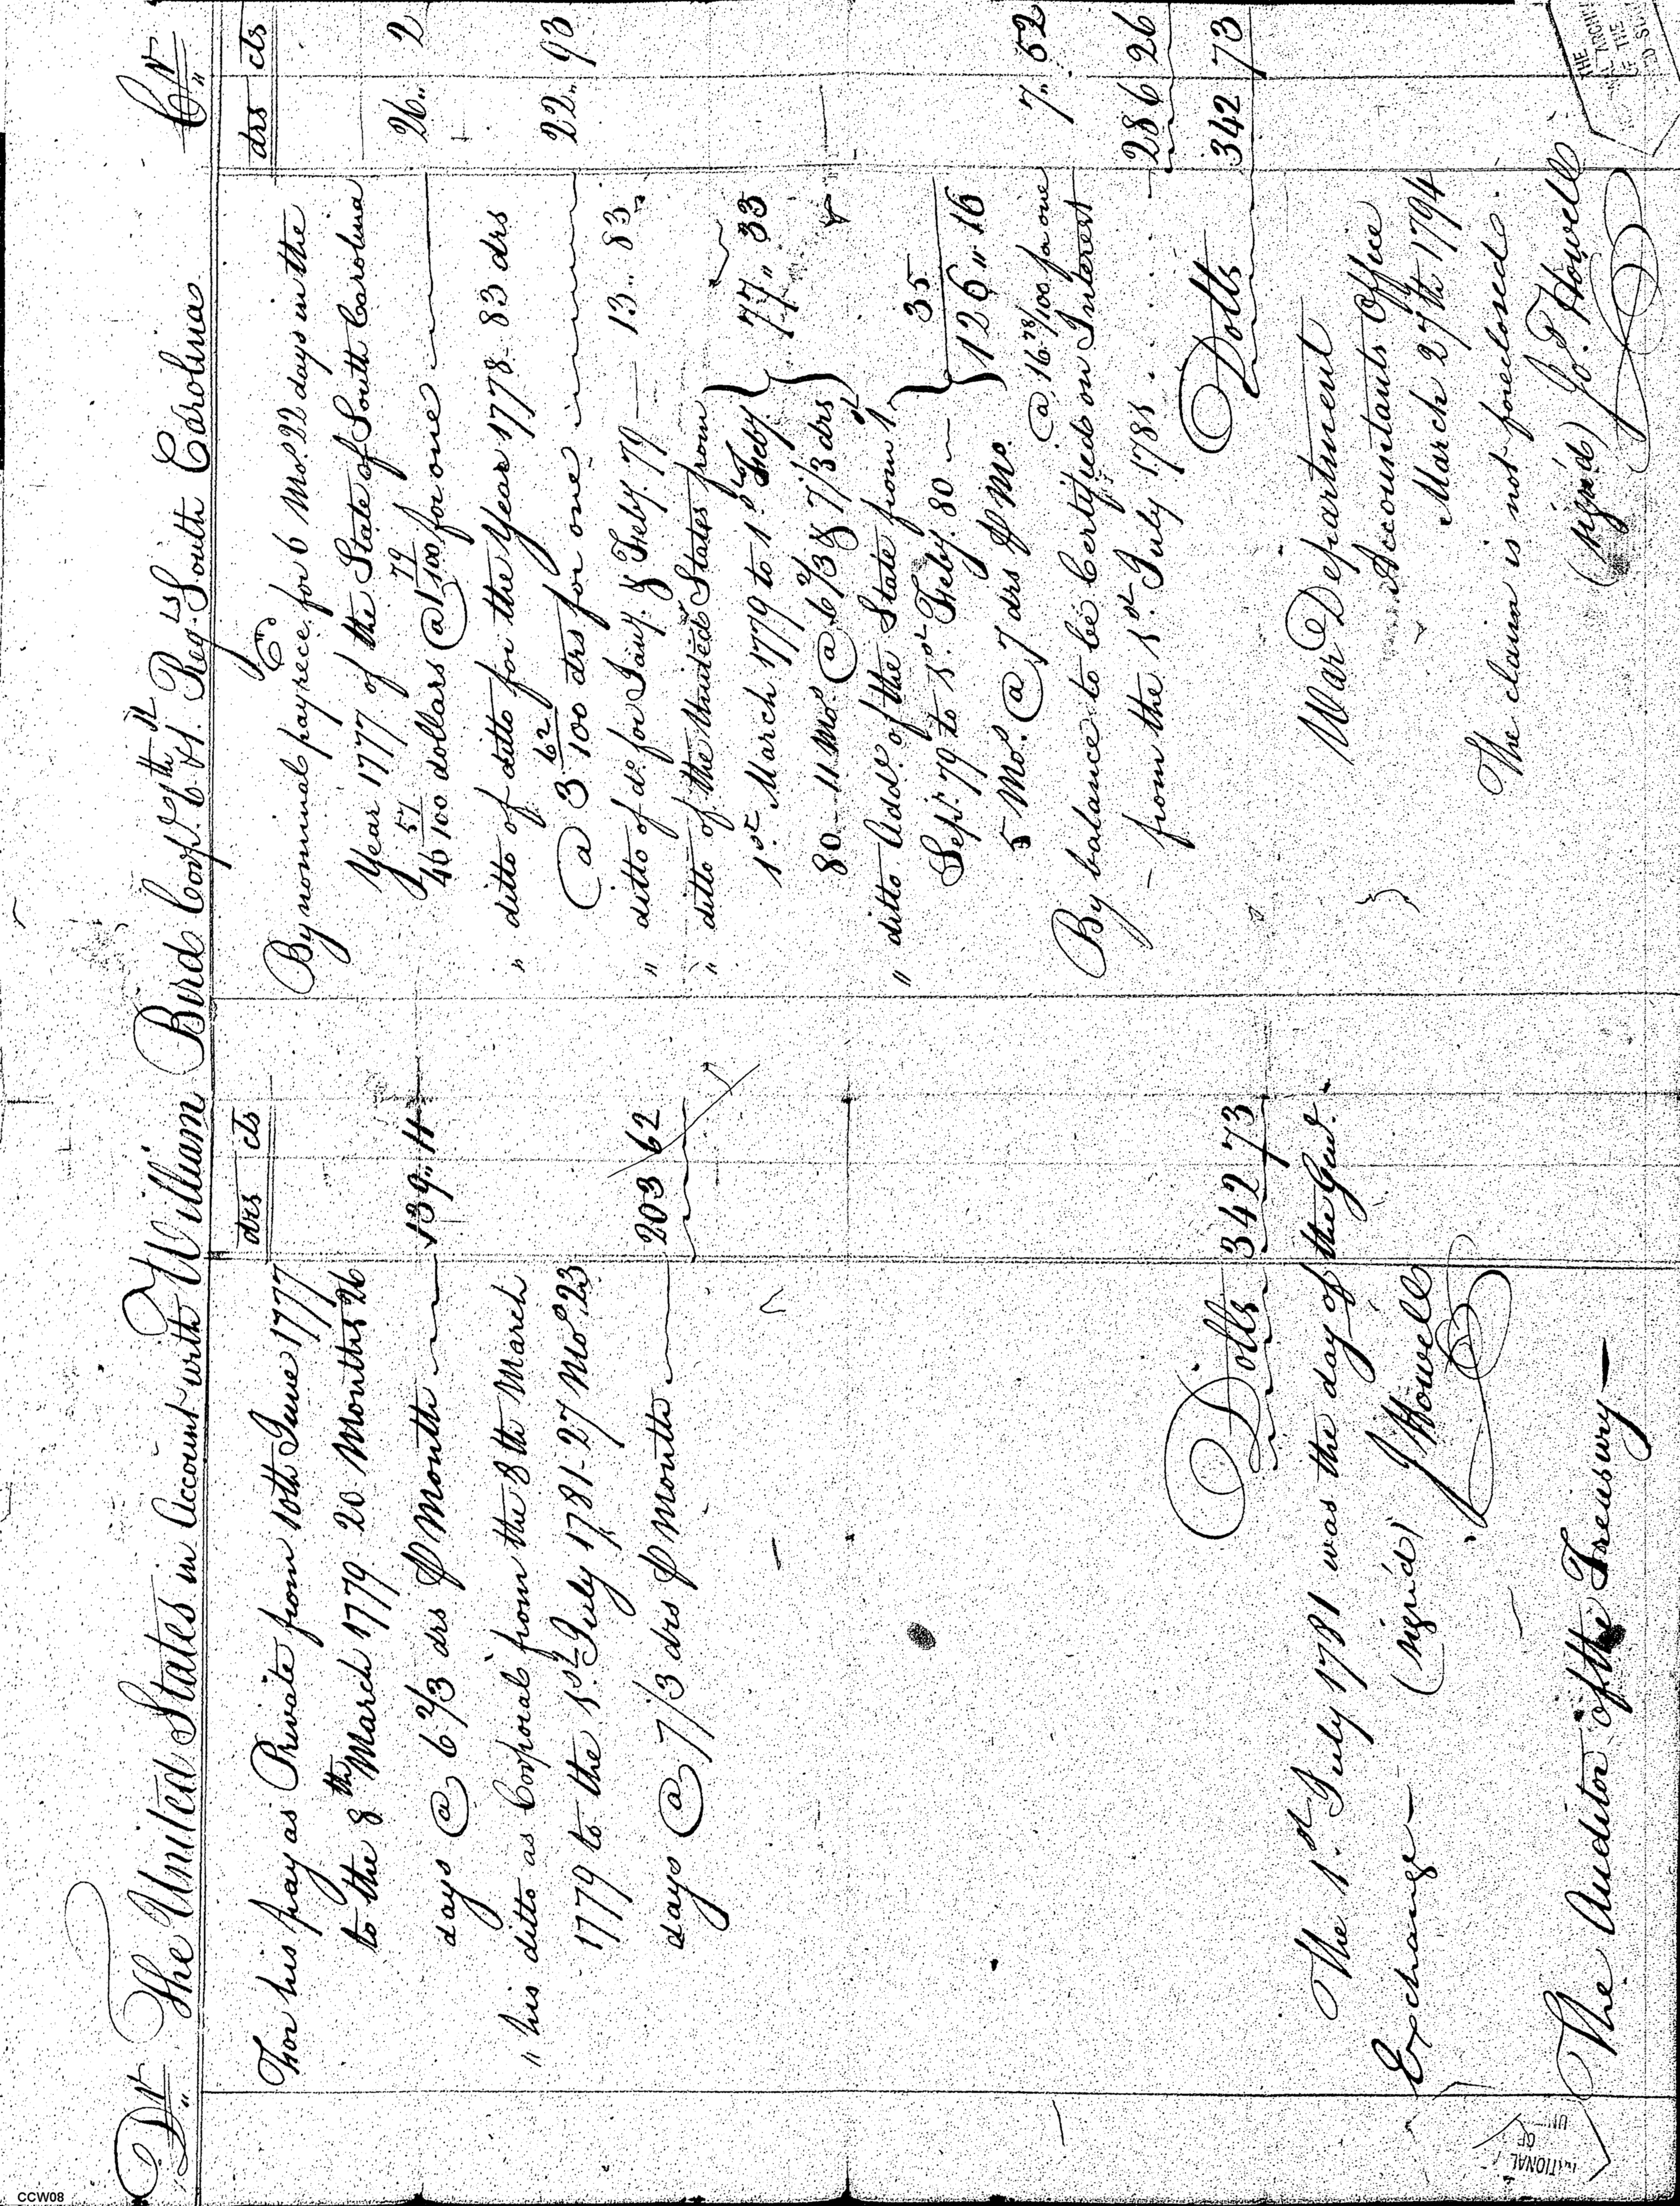 Dr The United States in Account with William Bird Corpl. 6th Regt. South Carolina Cr
drs cts
For his pay as Private from 10th June 1777
to the 8th March 1779 20 Months 26
days @ 6 2/3 drs P Month 139,, 11
" his ditto as Corporal from the 8th March
1779 to the 1st July 1781 - 27 Mos. 23
days @ 7 1/3 drs P Month 203 62
Dolls 342 73
The 1st July 1781 was the day of the Genl.
Exchange —
(signd) J Howell
The Auditor of the Treasury —
drs cts
By nominal pay rece. for 6 Mos. 22 days in the
Year 1777 of the State of South Carolina
46 57/100 dollars @ 1 79/100 for one 26,, 2
" ditto of ditto for the Year 1778 - 83 drs
@ 3 62/100 drs for one 22,, 93
" ditto of do. for Jany. & Feby. 79 — 13 - 83
" ditto of the United States from
1st March 1779 to 1st Feby. 77,, 33
80 - 11 Mos. @ 6 2/3 & 7 1/3 drs
" ditto Addl. of the State from 1st
Sept. 79 to 1st Feby. 80 — 35
5 Mos. @ 7 drs P Mo. 126,, 16
@ 16 78/100 for one 7,, 52
By balance to be Certified on Interest
- from the 1st July 1781 . . . . 286 26
Dolls 342 73
War Department
Accountants Office
March 27th 1794
The claim is not foreclosed.
(signd) Jo. Howell
THE
ARCHIV
OF THE
NATIONAL
OF
UN
CCW08